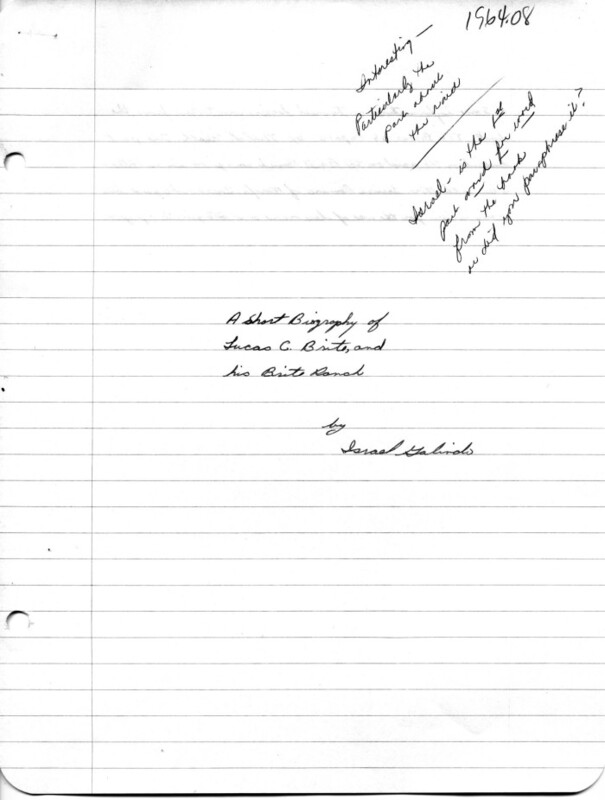 1964.08
Interesting —
Particularly the
part about
the raid
Israel — is the 1st
part word for word
from the book
or did you paraphrase it?
A Short Biography of
Lucas C. Brite, and
his Brite Ranch
by
Israel Galindo